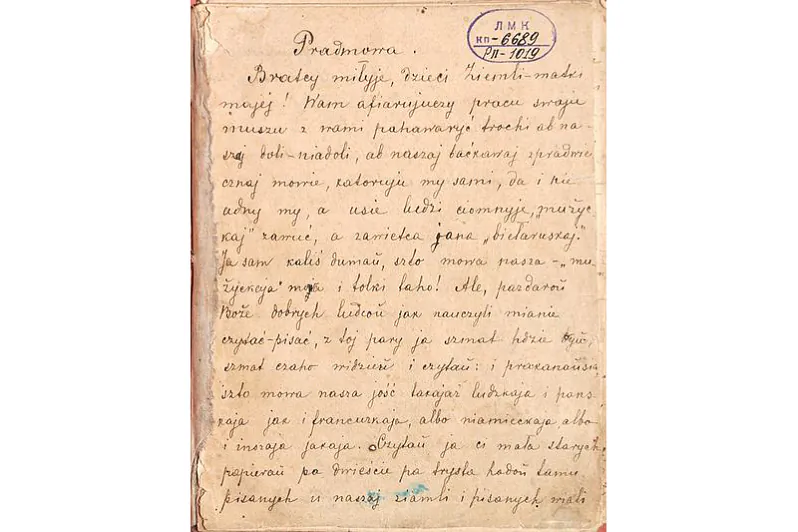 ЛМК
КП-6689
РП-1019
Pradmowa.
Bratcy miłyje, dzieci Ziemli-matki
majej! Wam afiarujuczy pracu swaju
muszu z wami pahawaryć trochi ab na-
szaj doli-niadoli, ab naszaj baćkawaj zpradwie
cznaj mowie, katoruju my sami, da i nie
adny my, a usie ludzi ciomnyje, „mużyc
kaj" zawuć, a zawietca jana „biełaruskaj."
Ja sam kaliś dumaŭ, szto mowa nasza - „mu-
życkaja" mowa i tolki taho! Ale, pazdaroŭ
Boże dobrych ludcoŭ jak nauczyli mianie
czytać-pisać, z toj pary ja szmat hdzie byŭ,
szmat czaho widzieŭ i czytaŭ: i prakanaŭsia
szto mowa nasza jość takajaż ludzkaja i pans
kaja jak i francuzkaja, albo niamieckaja albo
i inszaja jakaja. Czytaŭ ja ci mała starych
papieraŭ pa dwieście pa trysta hadoŭ tamu
pisanych u naszaj ziamli i pisanych